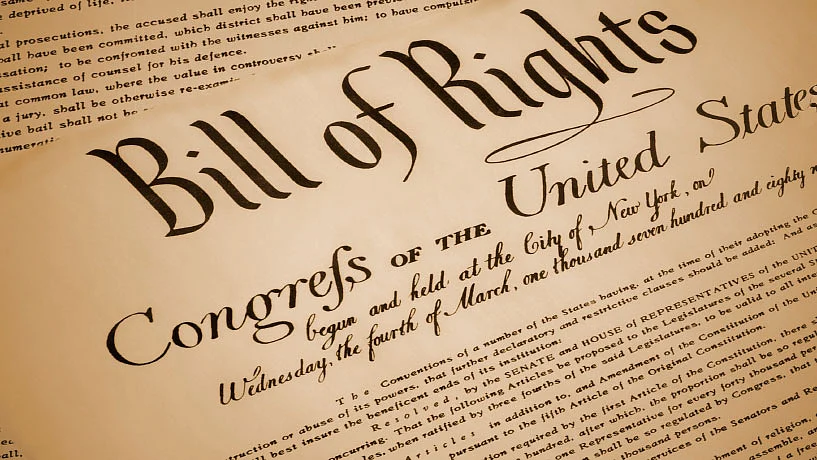 deprived of life,
al prosecutions, the accused shall enjoy the
all have been committed, which district shall have been
sation; to be confronted with the witnesses against him; to have
assistance of counsel for his defence.
at common law, where the value in controversy
a jury, shall be otherwise
ive bail shall not be
Bill of Rights
Congreſs OF THE United States
begun and held at the City of New York, on
Wednesday, the fourth of March, one thousand seven hundred and eighty
The Conventions of a number of the States having, at the time of their adopting the
ruction or abuse of its powers, that further declaratory and restrictive clauses should be added: And as
ll best insure the beneficent ends of its institution:
Resolved, by the SENATE and HOUSE of REPRESENTATIVES of the
oncurring. That the following Articles be proposed to the Legislatures of the several
les, when ratified by three fourths of the said Legislatures, to be valid to all
Articles in addition to, and Amendment of the Constitution of the
pursuant to the fifth Article of the Original Constitution.
tion required by the first Article of the Constitution, there
hundred, after which, the proportion shall be so
one Representative for every forty thousand
shall be so regulated by Congress, that
thousand persons.
services of the Senators and
ment of religion,
assemble,